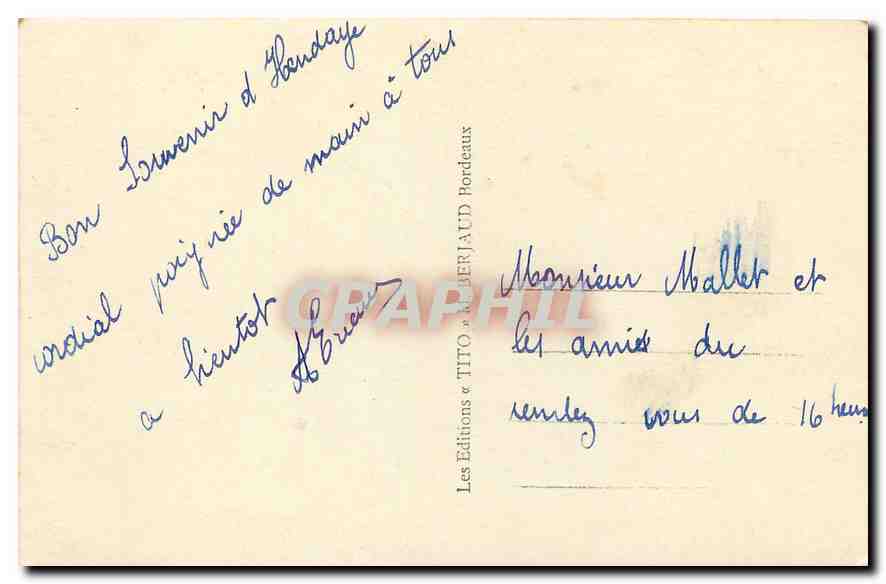 Bon Souvenir d'Hendaye
cordial poignée de main à tous
a bientot
Les Editions « TITO » M. BERJAUD Bordeaux
CPAPHIL
Monsieur Mallet et
les amies du
rendez vous de 16 heures